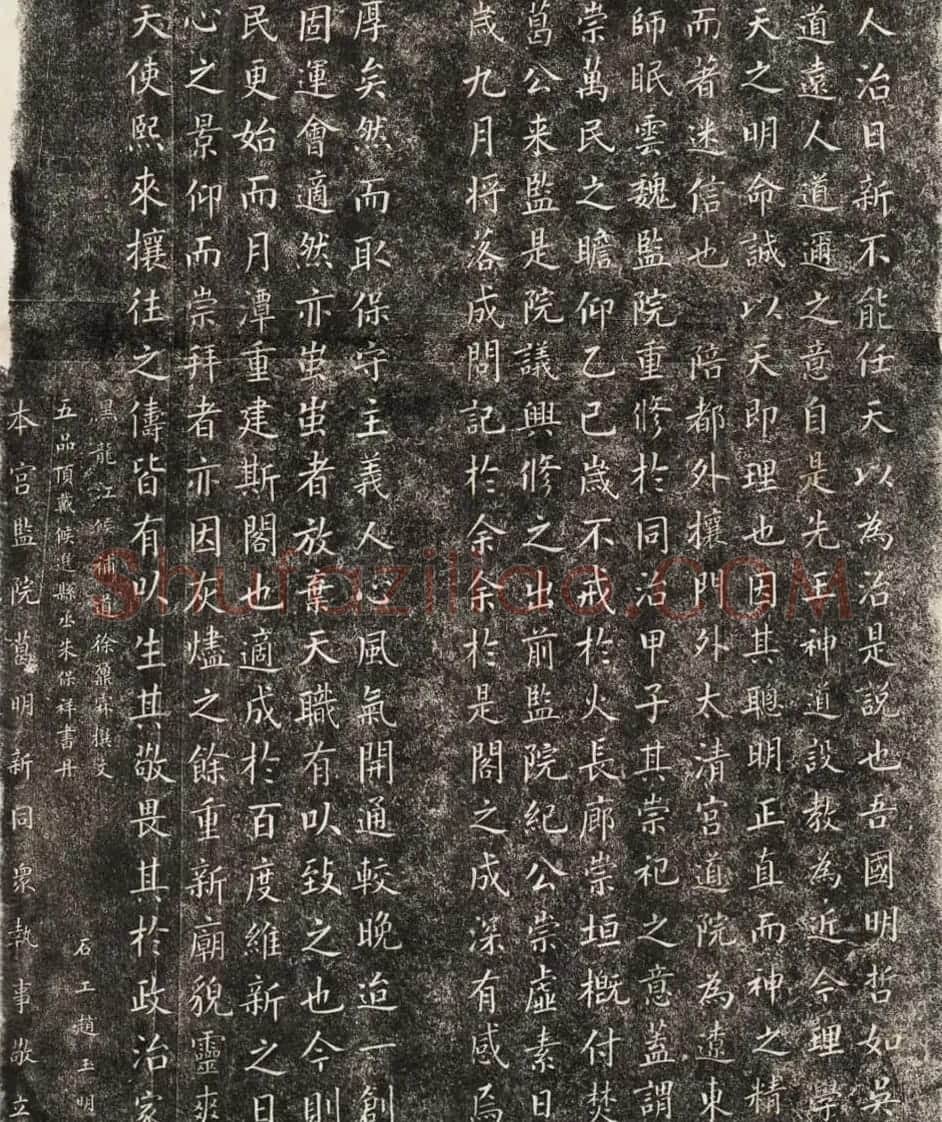 人治日新不能任天以為治是説也吾國明哲如吳
道遠人道邇之意自是先王神道設教為近今理學
天之明命誠以天即理也因其聰明正直而神之精
而著迷信也陪都外攘門外太清宮道院為遼東
師眠雲魏監院重修於同治甲子其崇祀之意蓋謂
崇萬民之瞻仰乙巳歳不戒於火長廊崇垣概付焚
葛公来監是院議興修之出前監院紀公崇虛素日
歳九月将落成問記於余余於是閣之成深有感焉
厚矣然而取保守主義人心風氣開通較晚迨一創
固運會適然亦蚩蚩者放棄天職有以致之也今則
民更始而月潭重建斯閣也適成於百度維新之日
心之景仰而崇拜者亦因灰燼之餘重新廟貌靈爽
天使熙來攘往之儔皆有以生其敬畏其於政治家
黑龍江候補道徐鼐霖撰文
五品頂戴候選縣丞朱保祥書丹
石工趙玉明
本宮監院葛明新同眾執事敬立
Shufaziliao.COM